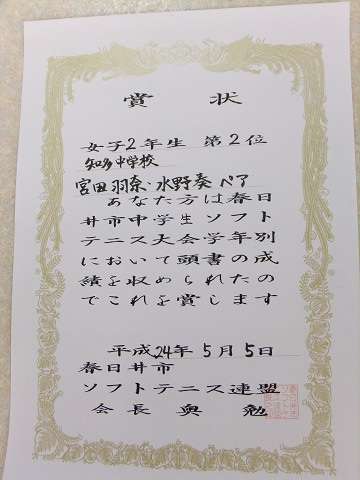 賞状
女子2年生 第2位
知多中学校
宮田羽奈・水野奏ペア
あなた方は春日
井市中学生ソフト
テニス大会学年別
において頭書の成
績を収められたの
でこれを賞します
平成24年5月5日
春日井市
ソフトテニス連盟
会長奥 勉